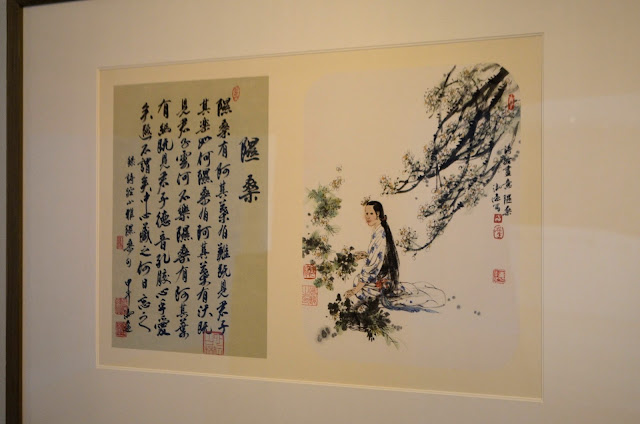 隰桑
隰桑有阿其葉有難既見君子
其樂如何隰桑有阿其葉有沃既
見君子雲何不樂隰桑有阿其葉
有幽既見君子德音孔膠心乎愛
矣遐不謂矣中心藏之何日忘之
錄詩經小雅隰桑句 甲午
詩經畫意隰桑
寫